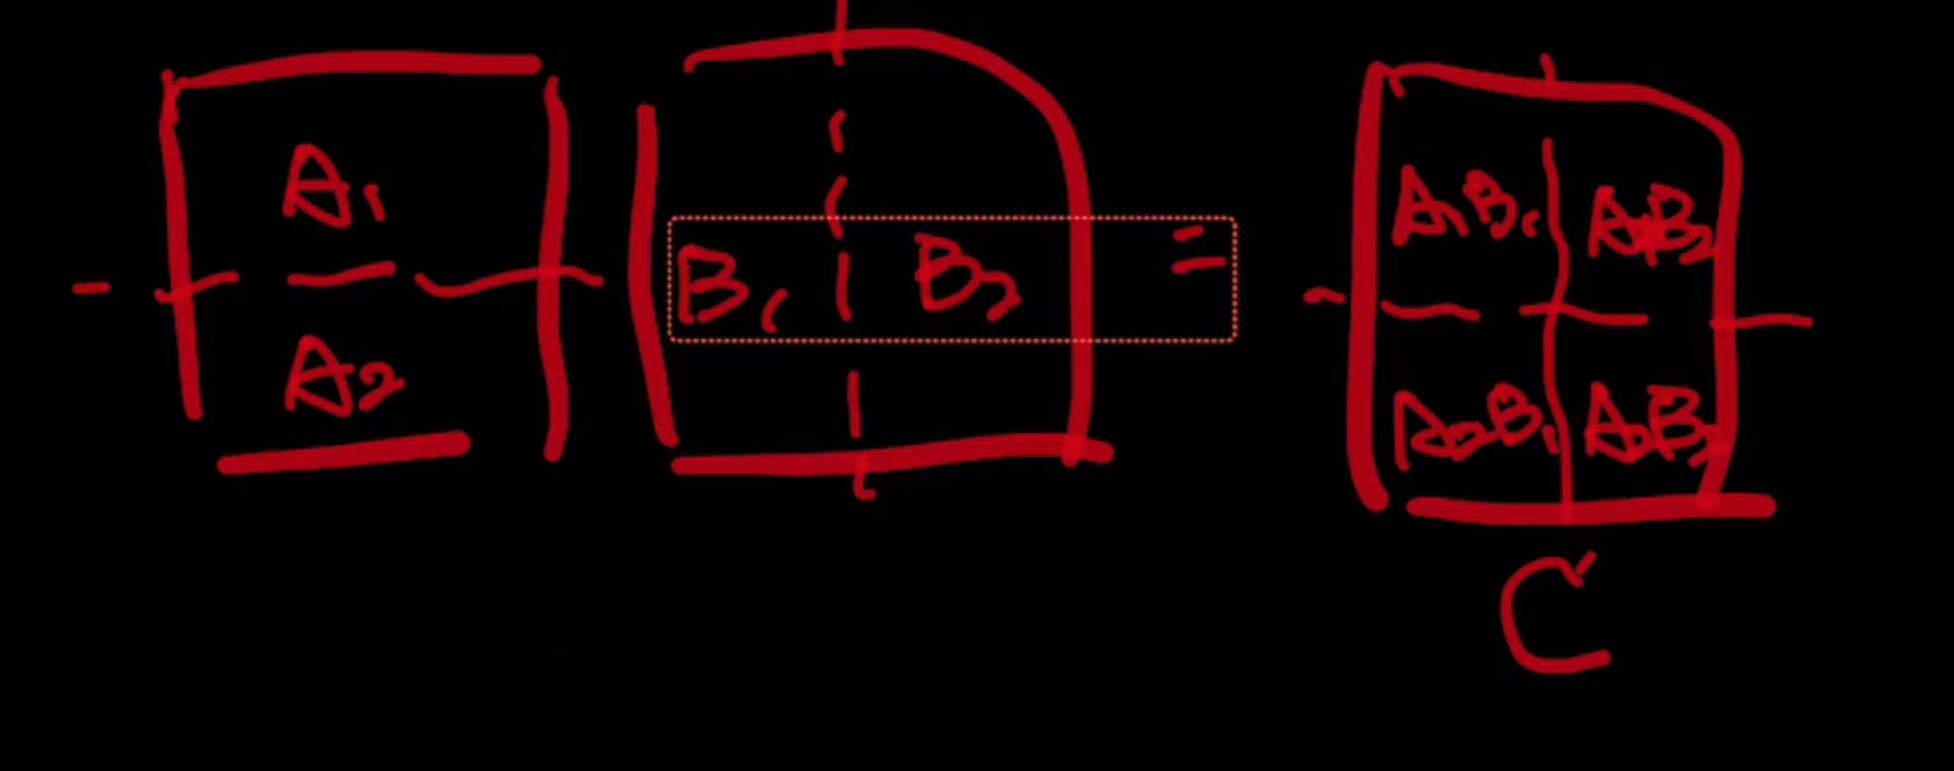 A1
A2
B1 B2 =
A1B1 A1B2
A2B1 A2B2
C